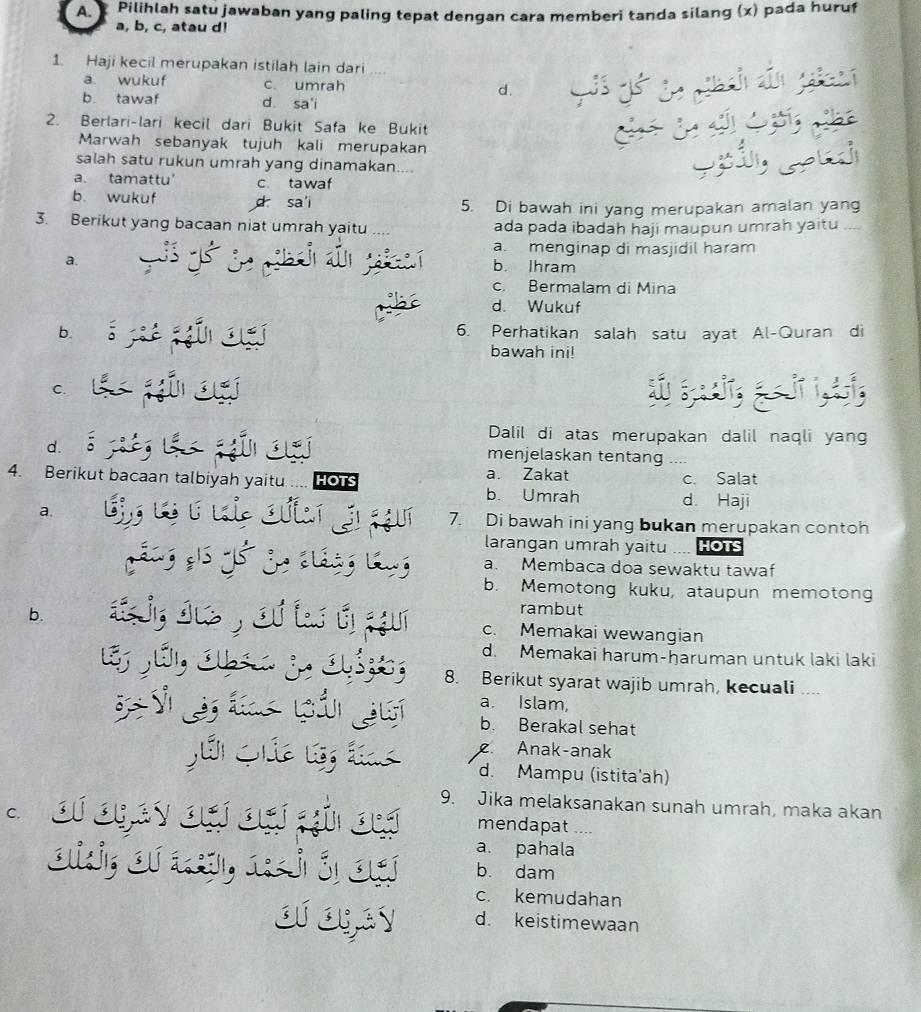 A. Pilihlah satu jawaban yang paling tepat dengan cara memberi tanda silang (x) pada huruf
a, b, c, atau d!
1. Haji kecil merupakan istilah lain dari ....
a. wukuf c. umrah
b. tawaf d. sa'i
2. Berlari-lari kecil dari Bukit Safa ke Bukit
Marwah sebanyak tujuh kali merupakan
salah satu rukun umrah yang dinamakan....
a. tamattu' c. tawaf
b. wukuf d. sa'i
3. Berikut yang bacaan niat umrah yaitu ....
a. أَسْتَغْفِرُ اللهَ الْعَظِيْمَ مِنْ كُلِّ ذَنْبٍ
عَظِيْمٍ
b. لَبَّيْكَ اللَّهُمَّ عُمْرَةً
c. لَبَّيْكَ اللَّهُمَّ حَجًّا
d. لَبَّيْكَ اللَّهُمَّ حَجًّا وَعُمْرَةً
4. Berikut bacaan talbiyah yaitu .... HOTS
a. اَللَّهُمَّ إِنِّي أَسْأَلُكَ عِلْمًا نَافِعًا وَرِزْقًا
وَاسِعًا وَشِفَاءً مِنْ كُلِّ دَاءٍ وَسَقَمٍ
b. اَللَّهُمَّ إِنَّا نَسْأَلُكَ رِضَاكَ وَالْجَنَّةَ
وَنَعُوْذُبِكَ مِنْ سَخَطِكَ وَالنَّارِ رَبَّنَا
آتِنَا فِي الدُّنْيَا حَسَنَةً وَفِي الْأَخِرَةِ
حَسَنَةً وَقِنَا عَذَابَ النَّارِ
c. لَبَّيْكَ اللَّهُمَّ لَبَّيْكَ لَبَّيْكَ لَا شَرِيْكَ لَكَ
لَبَّيْكَ إِنَّ الْحَمْدَ وَالنِّعْمَةَ لَكَ وَالْمُلْكَ
لَا شَرِيْكَ لَكَ
d. أَسْتَغْفِرُ اللهَ الْعَظِيْمَ مِنْ كُلِّ ذَنْبٍ
عَظِيْمٍ وَأَتُوْبُ إِلَيْهِ مِنْ جَمِيْعِ
الْمَعَاصِي وَالذُّنُوْبِ
5. Di bawah ini yang merupakan amalan yang
ada pada ibadah haji maupun umrah yaitu ....
a. menginap di masjidil haram
b. Ihram
c. Bermalam di Mina
d. Wukuf
6. Perhatikan salah satu ayat Al-Quran di
bawah ini!
وَأَتِمُّوا الْحَجَّ وَالْعُمْرَةَ لِلَّهِ
Dalil di atas merupakan dalil naqli yang
menjelaskan tentang ....
a. Zakat c. Salat
b. Umrah d. Haji
7. Di bawah ini yang bukan merupakan contoh
larangan umrah yaitu .... HOTS
a. Membaca doa sewaktu tawaf
b. Memotong kuku, ataupun memotong
rambut
c. Memakai wewangian
d. Memakai harum-haruman untuk laki laki
8. Berikut syarat wajib umrah, kecuali ....
a. Islam,
b. Berakal sehat
c. Anak-anak
d. Mampu (istita'ah)
9. Jika melaksanakan sunah umrah, maka akan
mendapat ....
a. pahala
b. dam
c. kemudahan
d. keistimewaan